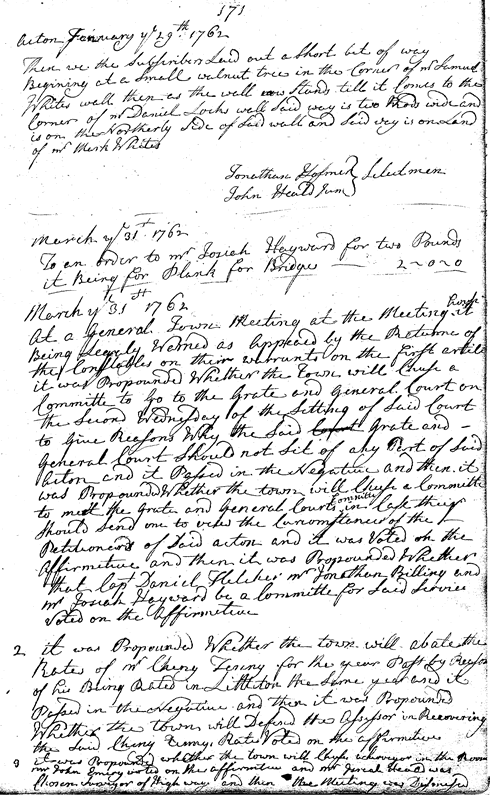 171
Acton January ye 29th 1762
Then we the Subscribers Laid out a Short bit of way
Begining at a Small walnut tree in the Corner of mr Samuel
Whites wall then as the wall now Stands till it Comes to the
Corner of mr Daniel Locks wall Said way is two Rods wide and
is on the Northerly Side of Said wall and Said way is on Land
of mr Mark Whites
Jonathan Hosmer } Selectmen
John Heald Jum
March ye 31st 1762
To an order to mr Josiah Hayward for two Pounds
it Being for Plank for Bridges — 2-0-0
March ye 31st 1762
At a General Town Meeting at the Meeting House it
Being Legaly Warned as appeared by the Returns of
the Constables on their warrants on the first article
it was Propounded Whether the Town will Chuse a
Committe to Go to the Grate and General Court on
the Second Wednsday of the Setting of Said Court
to Give Reasons Why the Said Grate and -
General Court Should not Sit of any Part of Said
Acton and it Passed in the Negative and then it
was Propounded Whether the town will Chuse a Committe
to meet the Grate and General Courts Committe in Case they
Should Send one to view the Curcumstances of the
Petitioners of Said acton and it was Voted on the
Affirmetive and then it was Propounded Whether
that Capt Daniel Fletcher mr Jonathan Billing and
mr Josiah Hayward be a Committe for Said Service
Voted on the Affirmetive
2 it was Propounded Whether the town will abate the
Rates of mr Cheny for the year Past by Reason
of his Being Rated in Littleton the Same year and it
Passed in the Negative and then it was Propounded
Whether the town will Defend the Assessor in Recovering
the Said Cheny Rate Voted on the affirmitive
3 it was Propounded whether the town will Chuse a Surveyor in the Room
mr John Emery voted on the affirmitive and mr Heald was
Chosen Surveyor of High way and then the Meeting was Dismised